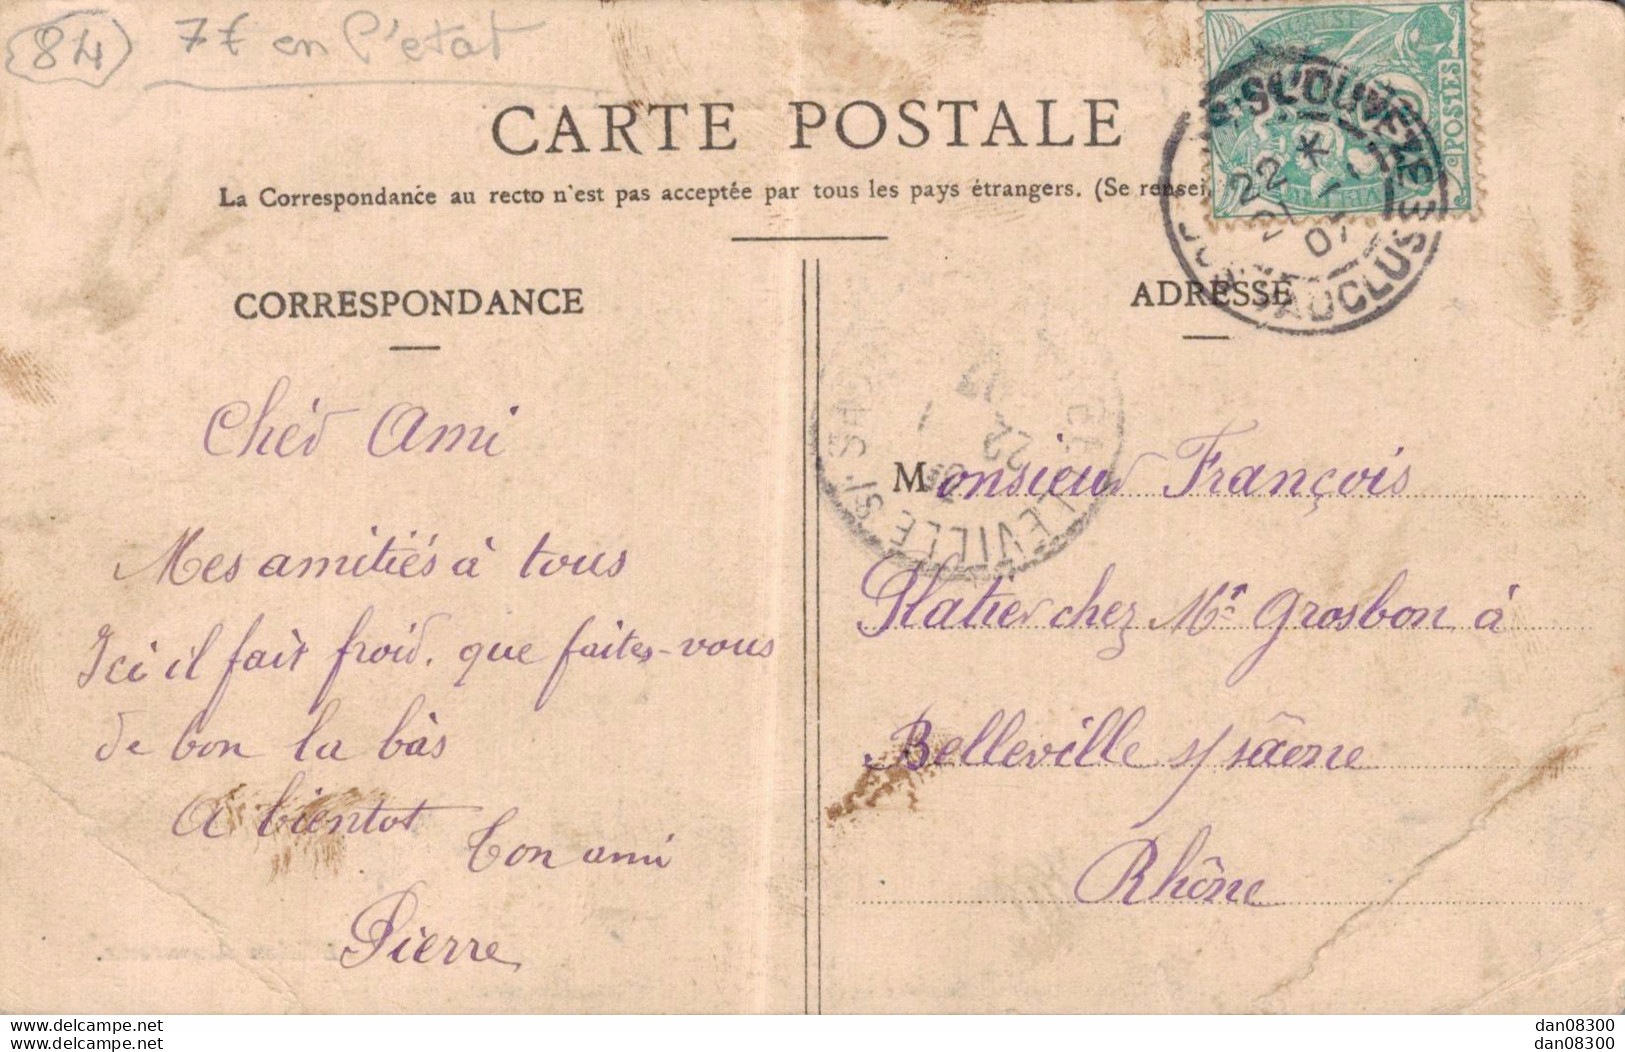 84 7€ en l'etat
CARTE POSTALE
La Correspondance au recto n'est pas acceptée par tous les pays étrangers. (Se rensei
POSTES
S-L'OUVEZE
22
07
VAUCLUSE
CORRESPONDANCE
ADRESSE
22
LEVILLE S/ SAÔ
Chèr Ami
Mes amitiés à tous
Ici il fait froid, que faites-vous
de bon la bàs
A bientot
Ton ami
Pierre
Monsieur François
Platier chez Mr Grosbon à
Belleville s/ sâone
Rhône
www.delcampe.net
www.delcampe.net
dan08300
dan08300